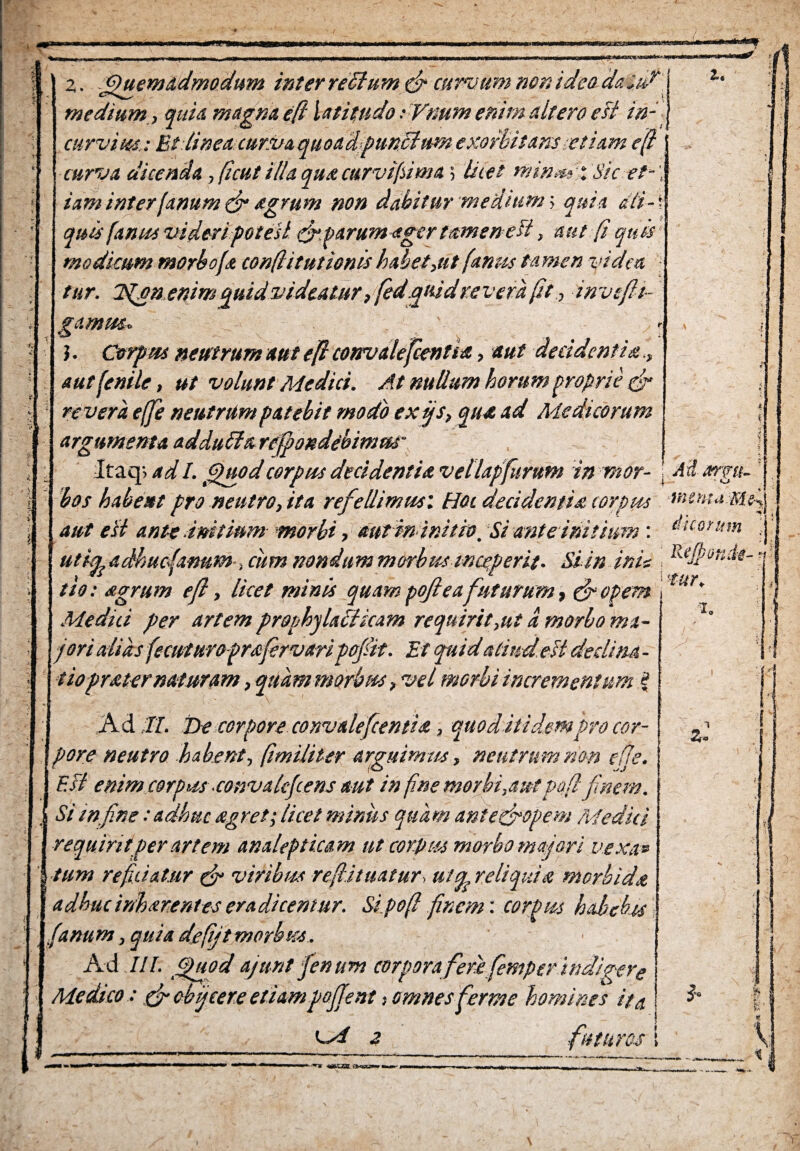 2. Quemadmodum inter rectum & curvum non ideo datur
medium, quia magna est latitudo: Vnum enim altero est in-
curvius: Et linea curva quoad punctum exorbitans etiam est
curva dicenda, sicut illa quæ curvissima; licet minus: Sic et-
iam inter sanum & ægrum non dabitur medium; quia ali-
quis sanus videri potest & parum æger tamen est, aut si quis
modicum morbosæ constitutionis habet, ut sanus tamen videa
tur. Non enim quid videatur, sed quid reverà sit, investi-
gamus.
2.
3. Corpus neutrum aut est convalescentiæ, aut decidentiæ,
aut senile, ut volunt Medici. At nullum horum propriè &
reverà esse neutrum patebit modò ex ijs, quæ ad Medicorum
argumenta adducta respondebimus.
Itaq; ad I. Quod corpus decidentiæ vel lapsurum in mor-
bos habent pro neutro, ita refellimus: Hoc decidentiæ corpus
aut est ante initium morbi, aut in initio. Si ante initium:
utiq; adhuc sanum, cùm nondum morbus inceperit. Si in ini-
tio: ægrum est, licet minùs quam postea futurum, & opem
Medici per artem prophylacticam requirit, ut à morbo ma-
jori aliàs secuturo præservari possit. Et quid aliud est declina-
tio præter naturam, quàm morbus, vel morbi incrementum?
Ad argu-
menta Me-
dicorum
Responde-
tur.
1.
Ad II. De corpore convalescentiæ, quod itidem pro cor-
pore neutro habent, similiter arguimus, neutrum non esse.
Est enim corpus convalescens aut in fine morbi, aut post finem.
Si in fine: adhuc ægret; licet minùs quàm ante & opem Medici
requirit per artem analepticam ut corpus morbo majori vexa-
tum reficiatur & viribus restituatur, utq; reliquiæ morbidæ
adhuc inhærentes eradicentur. Si post finem: corpus habebis
sanum, quia desijt morbus.
2.
Ad III. Quod ajunt senum corpora ferè semper indigere
Medico: & objicere etiam possent, omnes ferme homines ita
3.
A 2 futuros